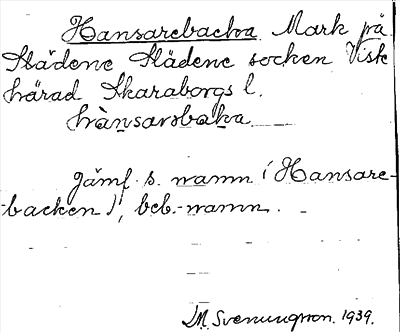 Hansarebacka Mark på
Slädene Slädene socken Viste
härad Skaraborgs l.
hànsarəbaka
Jämf. s. namn (Hansare-
backen), beb.-namn.
M. Svenungsson. 1939.